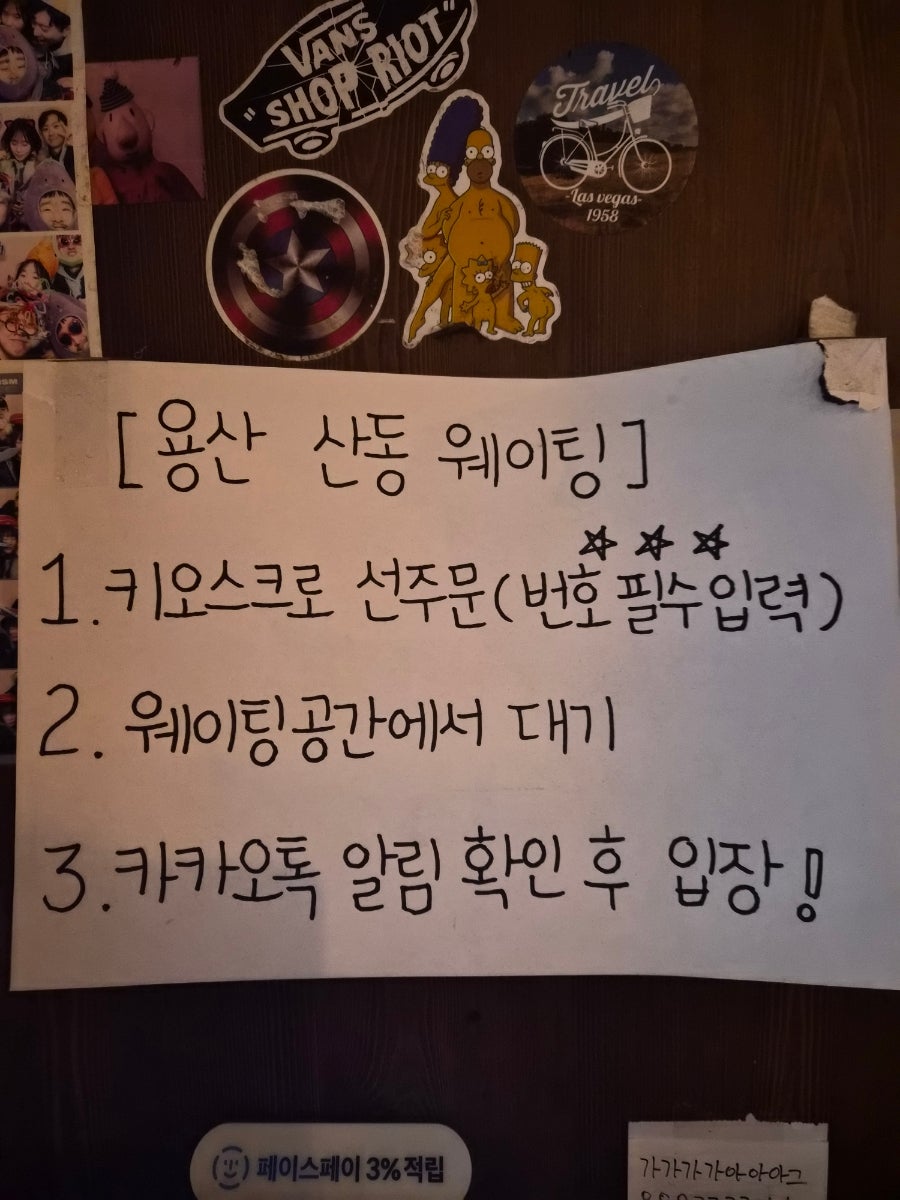 VANS
"SHOP RIOT"
Travel
-Las vegas-
1958
[용산 산동 웨이팅]
☆ ☆ ☆
1. 키오스크로 선주문 (번호 필수 입력)
2. 웨이팅공간에서 대기
3. 카카오톡 알림 확인 후 입장!
페이스페이 3% 적립
가가가가아아아그